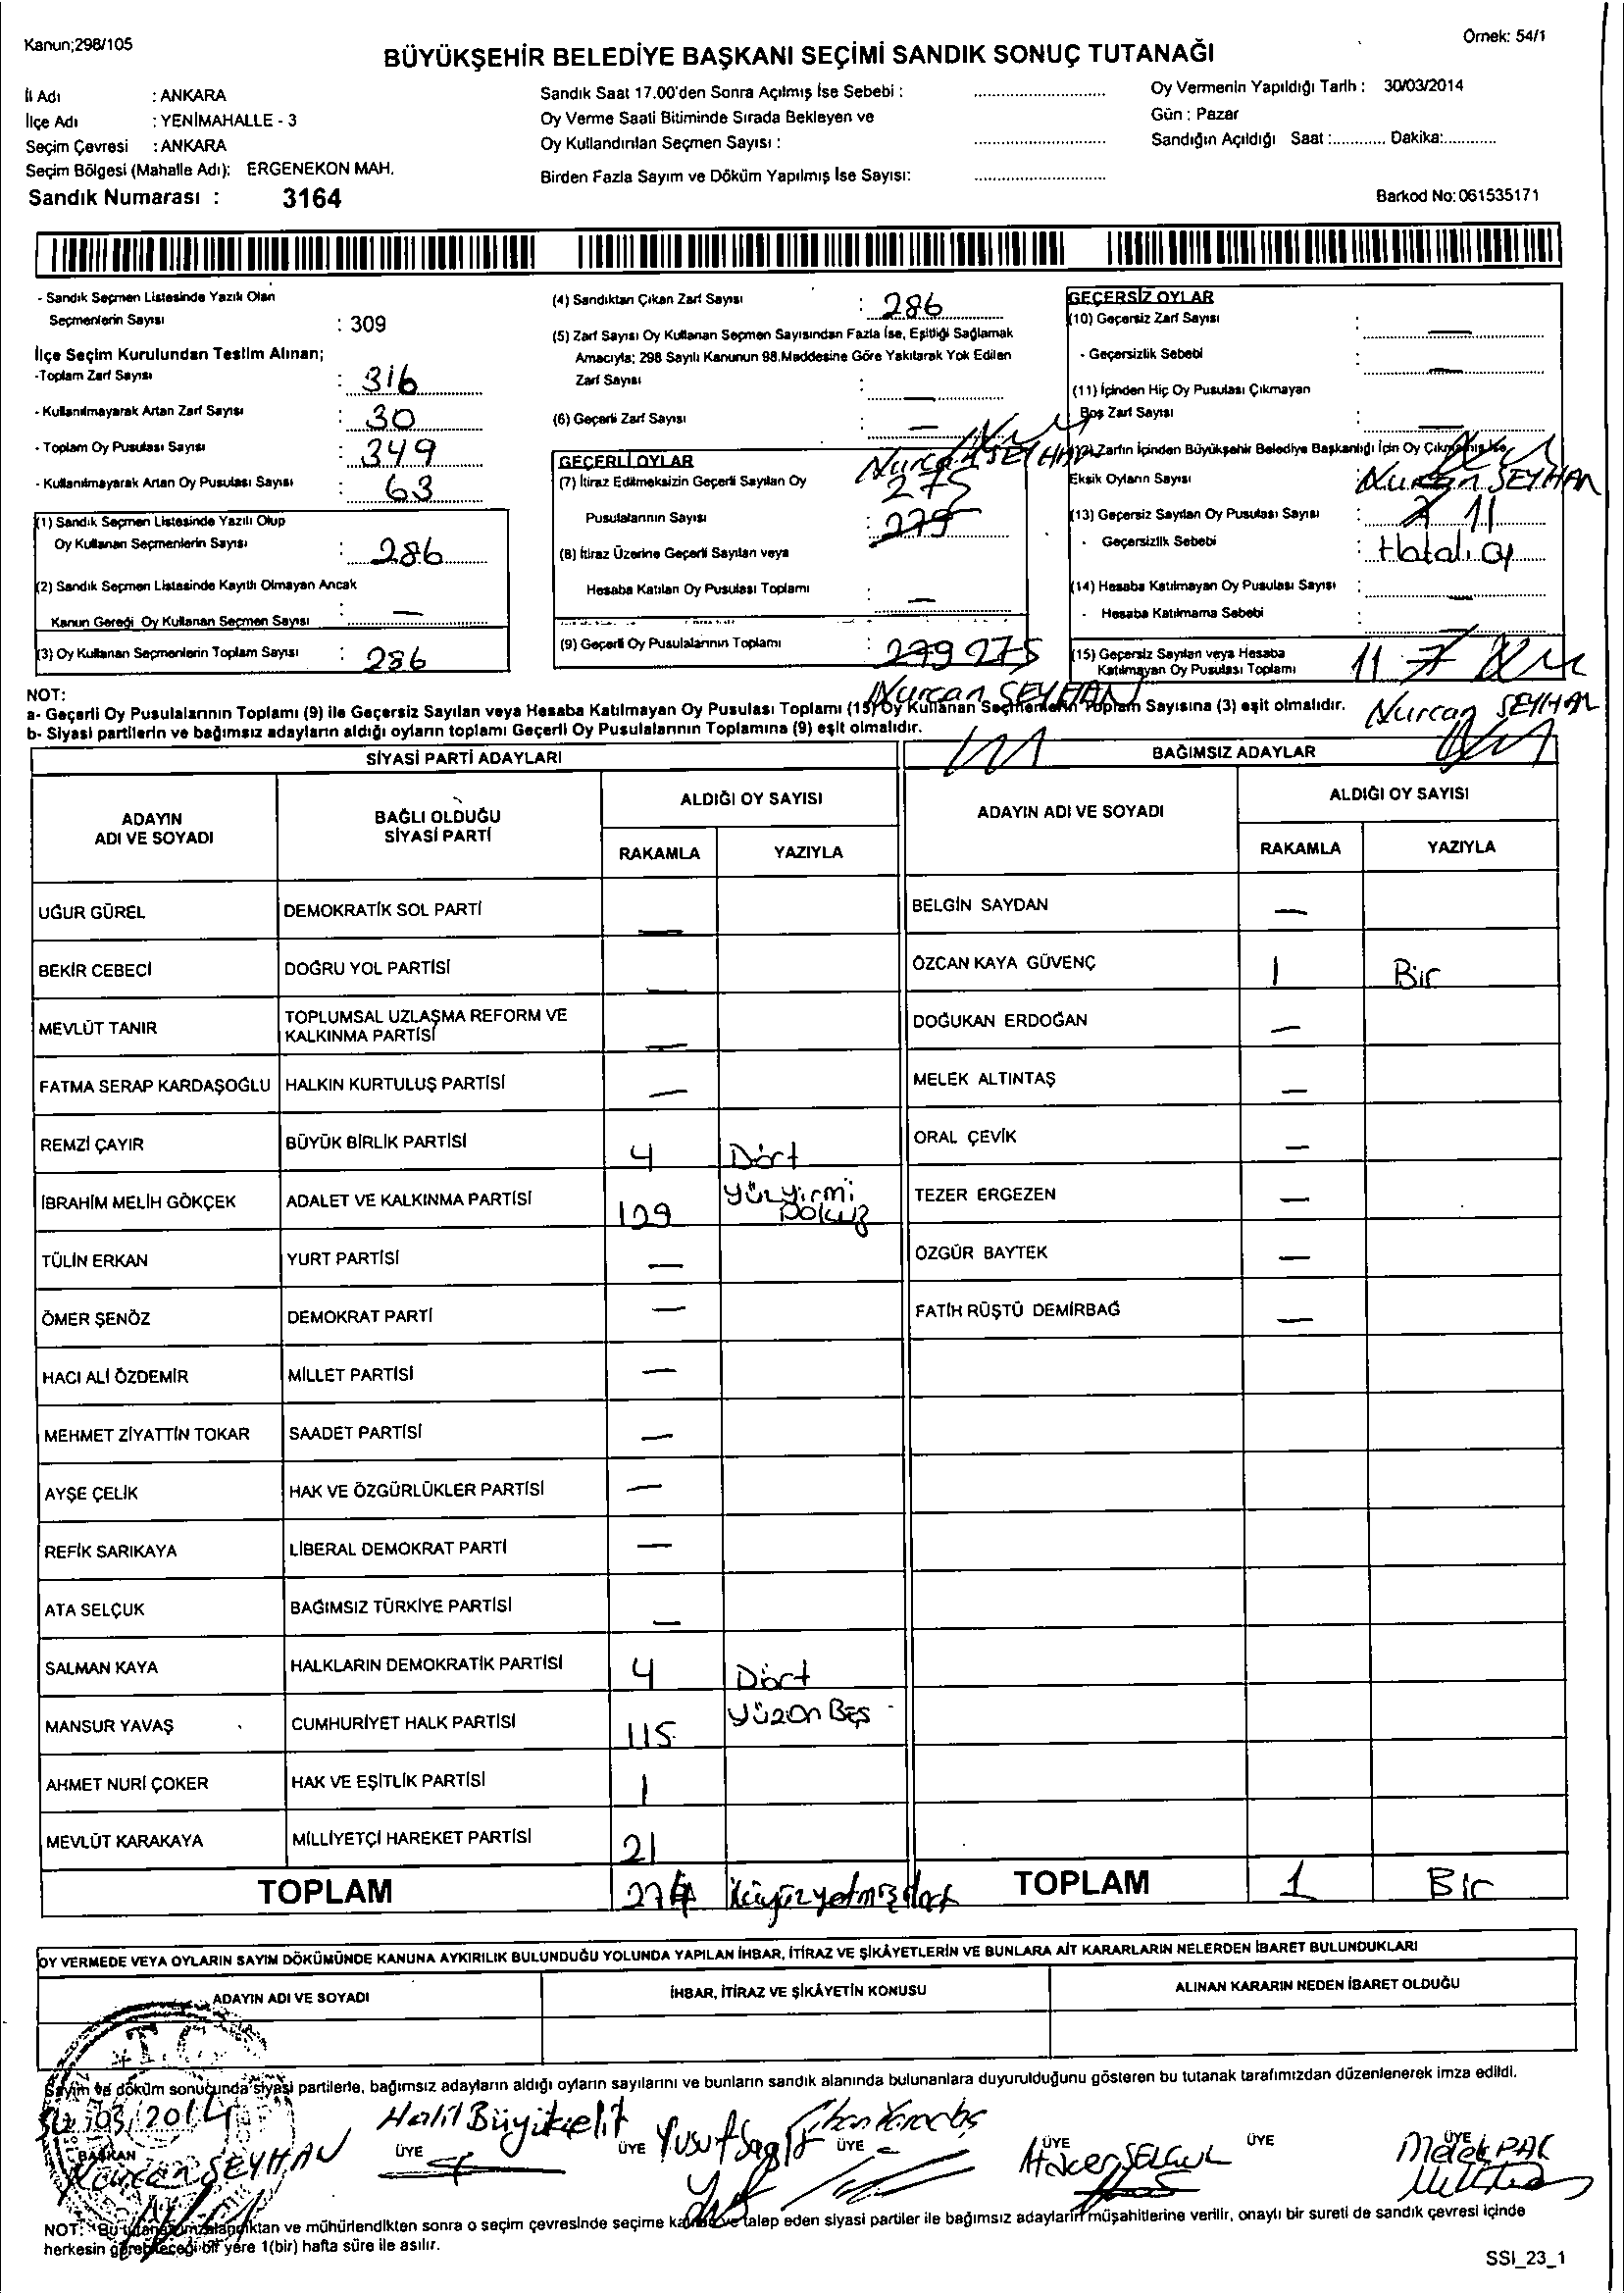 Kanun;298/105
Örnek: 54/1
BÜYÜKŞEHİR BELEDİYE BAŞKANI SEÇİMİ SANDIK SONUÇ TUTANAĞI
İl Adı : ANKARA
İlçe Adı : YENİMAHALLE - 3
Seçim Çevresi : ANKARA
Seçim Bölgesi (Mahalle Adı): ERGENEKON MAH.
Sandık Numarası : 3164
Sandık Saat 17.00'den Sonra Açılmış İse Sebebi :
Oy Verme Saati Bitiminde Sırada Bekleyen ve
Oy Kullandırılan Seçmen Sayısı :
Birden Fazla Sayım ve Döküm Yapılmış İse Sayısı:
Oy Vermenin Yapıldığı Tarih : 30/03/2014
Gün : Pazar
Sandığın Açıldığı Saat :............ Dakika:............
Barkod No: 061535171
- Sandık Seçmen Listesinde Yazılı Olan
Seçmenlerin Sayısı : 309
İlçe Seçim Kurulundan Teslim Alınan;
-Toplam Zarf Sayısı : 316
- Kullanılmayarak Artan Zarf Sayısı : 30
- Toplam Oy Pusulası Sayısı : 349
- Kullanılmayarak Artan Oy Pusulası Sayısı : 63
(1) Sandık Seçmen Listesinde Yazılı Olup
Oy Kullanan Seçmenlerin Sayısı : 286
(2) Sandık Seçmen Listesinde Kayıtlı Olmayan Ancak
Kanun Gereği Oy Kullanan Seçmen Sayısı : —
(3) Oy Kullanan Seçmenlerin Toplam Sayısı : 286
(4) Sandıktan Çıkan Zarf Sayısı : 286
(5) Zarf Sayısı Oy Kullanan Seçmen Sayısından Fazla İse, Eşitliği Sağlamak
Amacıyla; 298 Sayılı Kanunun 98.Maddesine Göre Yakılarak Yok Edilen
Zarf Sayısı : —
(6) Geçerli Zarf Sayısı : —
GEÇERLİ OYLAR
Nurcan SEYHAN
(7) İtiraz Edilmeksizin Geçerli Sayılan Oy 275
Pusulalarının Sayısı : 279
(8) İtiraz Üzerine Geçerli Sayılan veya
Hesaba Katılan Oy Pusulası Toplamı : —
(9) Geçerli Oy Pusulalarının Toplamı : 279 275
Nurcan SEYHAN
GEÇERSİZ OYLAR
(10) Geçersiz Zarf Sayısı : —
- Geçersizlik Sebebi : —
(11) İçinden Hiç Oy Pusulası Çıkmayan
Boş Zarf Sayısı : —
(12) Zarfın İçinden Büyükşehir Belediye Başkanlığı İçin Oy Çıkmamış İse
Eksik Oyların Sayısı
Nurcan SEYHAN
(13) Geçersiz Sayılan Oy Pusulası Sayısı : 7 11
- Geçersizlik Sebebi : Hatalı oy
(14) Hesaba Katılmayan Oy Pusulası Sayısı : —
- Hesaba Katılmama Sebebi :
(15) Geçersiz Sayılan veya Hesaba
Katılmayan Oy Pusulası Toplamı 11 7
Nurcan SEYHAN
NOT:
a- Geçerli Oy Pusulalarının Toplamı (9) ile Geçersiz Sayılan veya Hesaba Katılmayan Oy Pusulası Toplamı (15) Oy Kullanan Seçmenlerin Toplam Sayısına (3) eşit olmalıdır.
b- Siyasi partilerin ve bağımsız adayların aldığı oyların toplamı Geçerli Oy Pusulalarının Toplamına (9) eşit olmalıdır.
SİYASİ PARTİ ADAYLARI
ADAYIN ADI VE SOYADI BAĞLI OLDUĞU SİYASİ PARTİ ALDIĞI OY SAYISI
RAKAMLA YAZIYLA
UĞUR GÜREL DEMOKRATİK SOL PARTİ —
BEKİR CEBECİ DOĞRU YOL PARTİSİ —
MEVLÜT TANIR TOPLUMSAL UZLAŞMA REFORM VE KALKINMA PARTİSİ —
FATMA SERAP KARDAŞOĞLU HALKIN KURTULUŞ PARTİSİ —
REMZİ ÇAYIR BÜYÜK BİRLİK PARTİSİ 4 Dört
İBRAHİM MELİH GÖKÇEK ADALET VE KALKINMA PARTİSİ 129 Yüzyirmi Dokuz
TÜLİN ERKAN YURT PARTİSİ —
ÖMER ŞENÖZ DEMOKRAT PARTİ —
HACI ALİ ÖZDEMİR MİLLET PARTİSİ —
MEHMET ZİYATTİN TOKAR SAADET PARTİSİ —
AYŞE ÇELİK HAK VE ÖZGÜRLÜKLER PARTİSİ —
REFİK SARIKAYA LİBERAL DEMOKRAT PARTİ —
ATA SELÇUK BAĞIMSIZ TÜRKİYE PARTİSİ —
SALMAN KAYA HALKLARIN DEMOKRATİK PARTİSİ 4 Dört
MANSUR YAVAŞ CUMHURİYET HALK PARTİSİ 115 Yüzon Beş
AHMET NURİ ÇOKER HAK VE EŞİTLİK PARTİSİ 1
MEVLÜT KARAKAYA MİLLİYETÇİ HAREKET PARTİSİ 21
TOPLAM 274 İkiyüzyetmişdört
BAĞIMSIZ ADAYLAR
ADAYIN ADI VE SOYADI ALDIĞI OY SAYISI
RAKAMLA YAZIYLA
BELGİN SAYDAN —
ÖZCAN KAYA GÜVENÇ 1 Bir
DOĞUKAN ERDOĞAN —
MELEK ALTINTAŞ —
ORAL ÇEVİK —
TEZER ERGEZEN —
ÖZGÜR BAYTEK —
FATİH RÜŞTÜ DEMİRBAĞ —
TOPLAM 1 Bir
OY VERMEDE VEYA OYLARIN SAYIM DÖKÜMÜNDE KANUNA AYKIRILIK BULUNDUĞU YOLUNDA YAPILAN İHBAR, İTİRAZ VE ŞİKÂYETLERİN VE BUNLARA AİT KARARLARIN NELERDEN İBARET BULUNDUKLARI
ADAYIN ADI VE SOYADI İHBAR, İTİRAZ VE ŞİKÂYETİN KONUSU ALINAN KARARIN NEDEN İBARET OLDUĞU
T.C.
Sayım ve döküm sonucunda siyasi partilerle, bağımsız adayların aldığı oyların sayılarını ve bunların sandık alanında bulunanlara duyurulduğunu gösteren bu tutanak tarafımızdan düzenlenerek imza edildi.
/03/2014
BAŞKAN ÜYE ÜYE ÜYE ÜYE ÜYE ÜYE
Nurcan SEYHAN Halil Yusuf Melek
NOT: Bu tutanak imzalandıktan ve mühürlendikten sonra o seçim çevresinde seçime katılan ve talep eden siyasi partiler ile bağımsız adayların müşahitlerine verilir, onaylı bir sureti de sandık çevresi içinde
herkesin görebileceği bir yere 1(bir) hafta süre ile asılır.
SSI_23_1